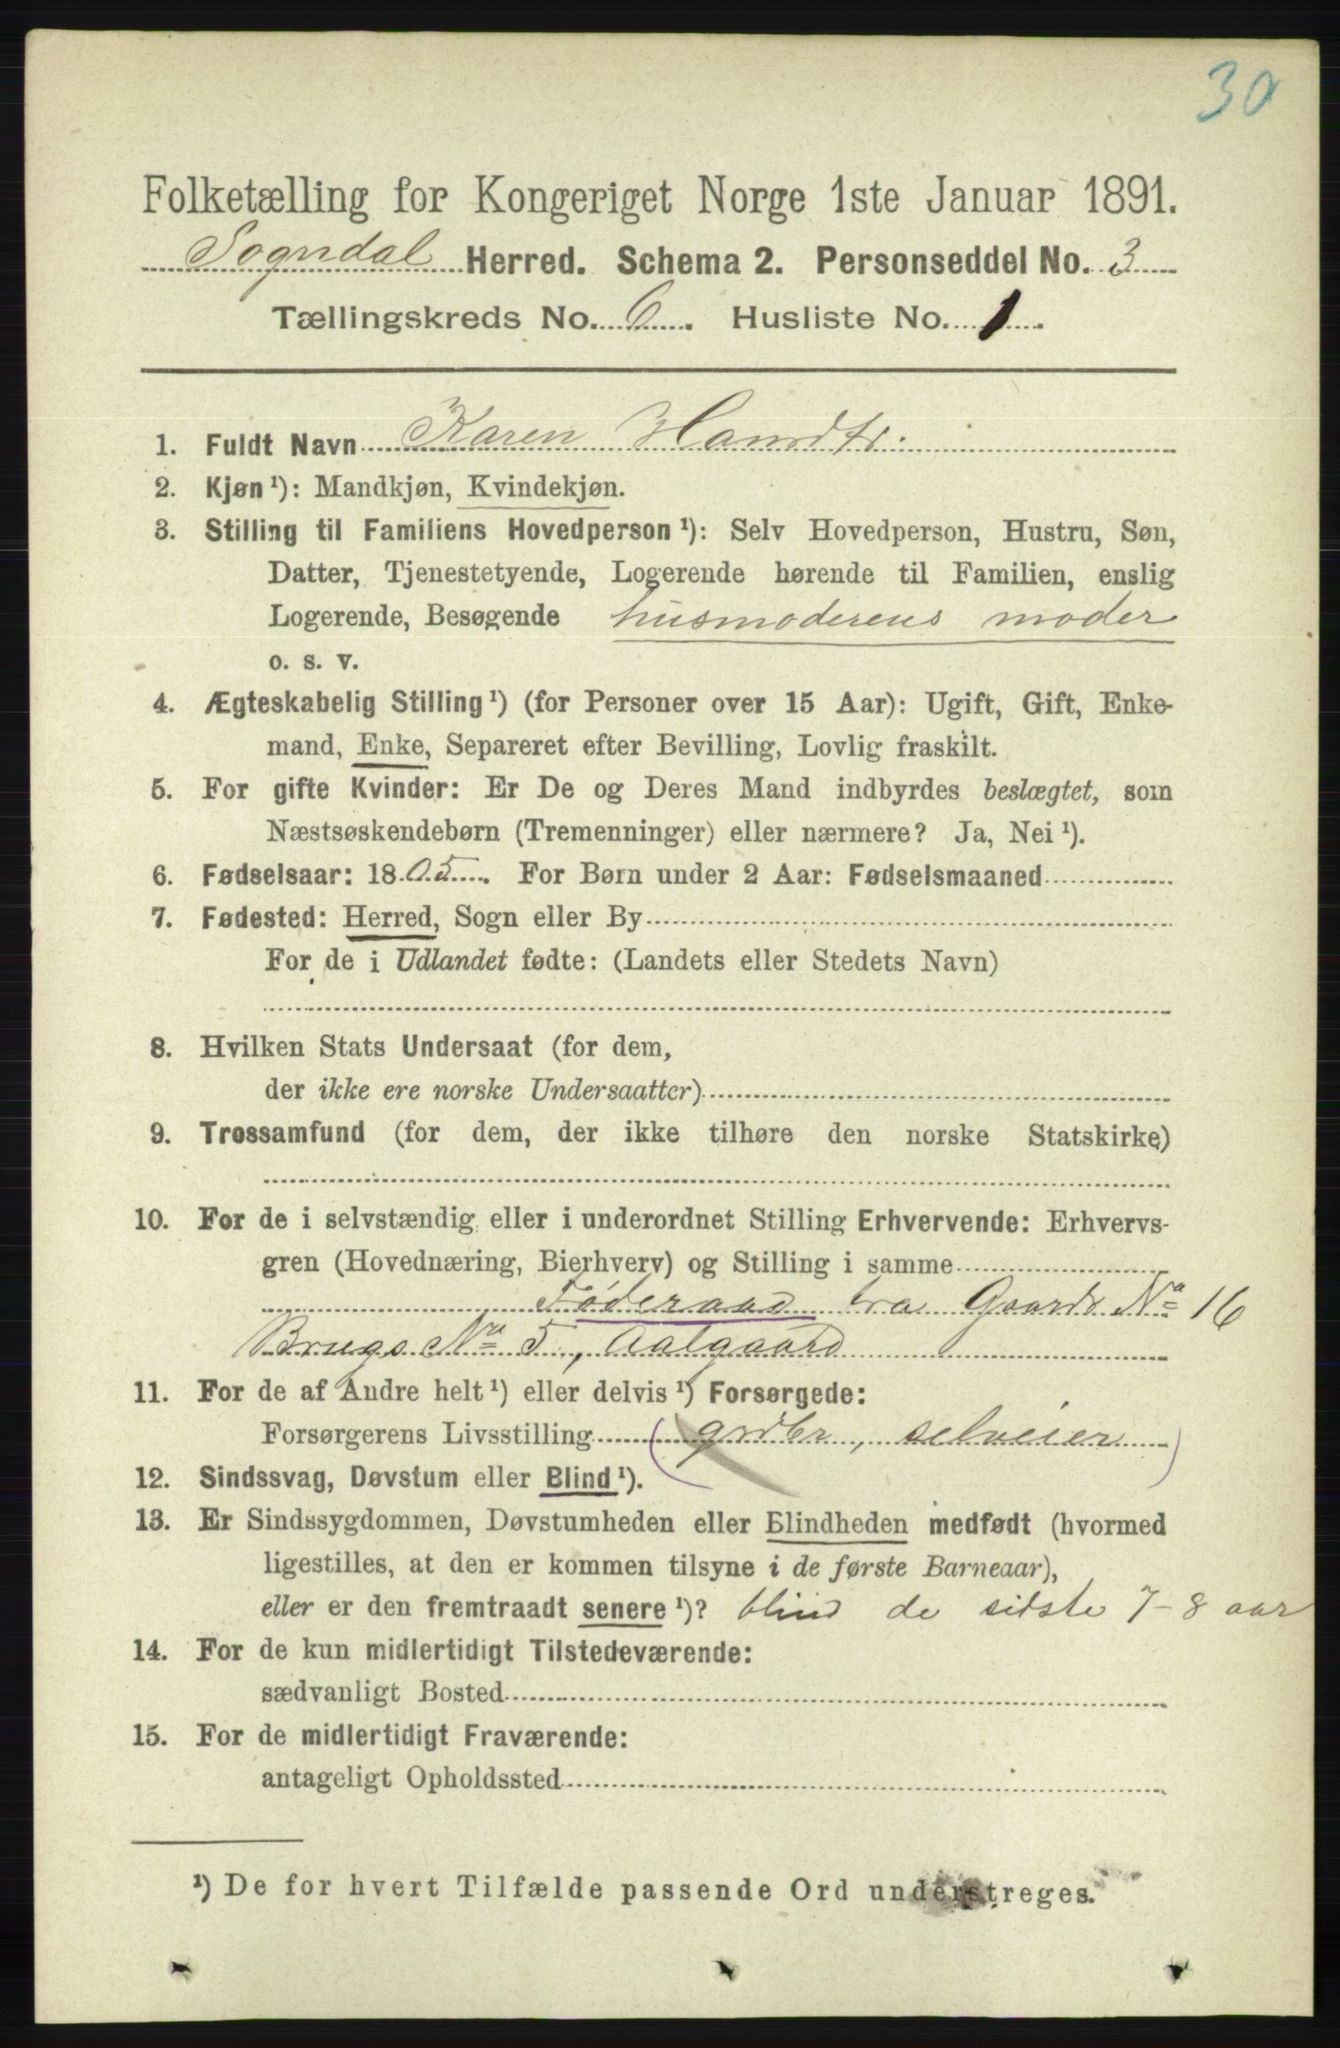 30
Folketælling for Kongeriget Norge 1ste Januar 1891.
Sogndal Herred. Schema 2. Personseddel No. 3
Tællingskreds No. 6. Husliste No. 1.
1. Fuldt Navn Karen
2. Kjøn ¹): Mandkjøn, Kvindekjøn.
3. Stilling til Familiens Hovedperson ¹): Selv Hovedperson, Hustru, Søn,
Datter, Tjenestetyende, Logerende hørende til Familien, enslig
Logerende, Besøgende husmoderens moder
o. s. v.
4. Ægteskabelig Stilling ¹) (for Personer over 15 Aar): Ugift, Gift, Enke-
mand, Enke, Separeret efter Bevilling, Lovlig fraskilt.
5. For gifte Kvinder: Er De og Deres Mand indbyrdes beslægtet, som
Næstsøskendebørn (Tremenninger) eller nærmere? Ja, Nei ¹).
6. Fødselsaar: 1805. For Børn under 2 Aar: Fødselsmaaned
7. Fødested: Herred, Sogn eller By
For de i Udlandet fødte: (Landets eller Stedets Navn)
8. Hvilken Stats Undersaat (for dem,
der ikke ere norske Undersaatter)
9. Trossamfund (for dem, der ikke tilhøre den norske Statskirke)
10. For de i selvstændig eller i underordnet Stilling Erhvervende: Erhvervs-
gren (Hovednæring, Bierhverv) og Stilling i samme
Føderaad fra Gaards No 16
Brugs No 5, Aalgaard
11. For de af Andre helt ¹) eller delvis ¹) Forsørgede:
Forsørgerens Livsstilling (grdbr, selveier)
12. Sindssvag, Døvstum eller Blind ¹).
13. Er Sindssygdommen, Døvstumheden eller Blindheden medfødt (hvormed
ligestilles, at den er kommen tilsyne i de første Barneaar),
eller er den fremtraadt senere ¹)? blind de sidste 7-8 aar
14. For de kun midlertidigt Tilstedeværende:
sædvanligt Bosted
15. For de midlertidigt Fraværende:
antageligt Opholdssted
¹) De for hvert Tilfælde passende Ord understreges.